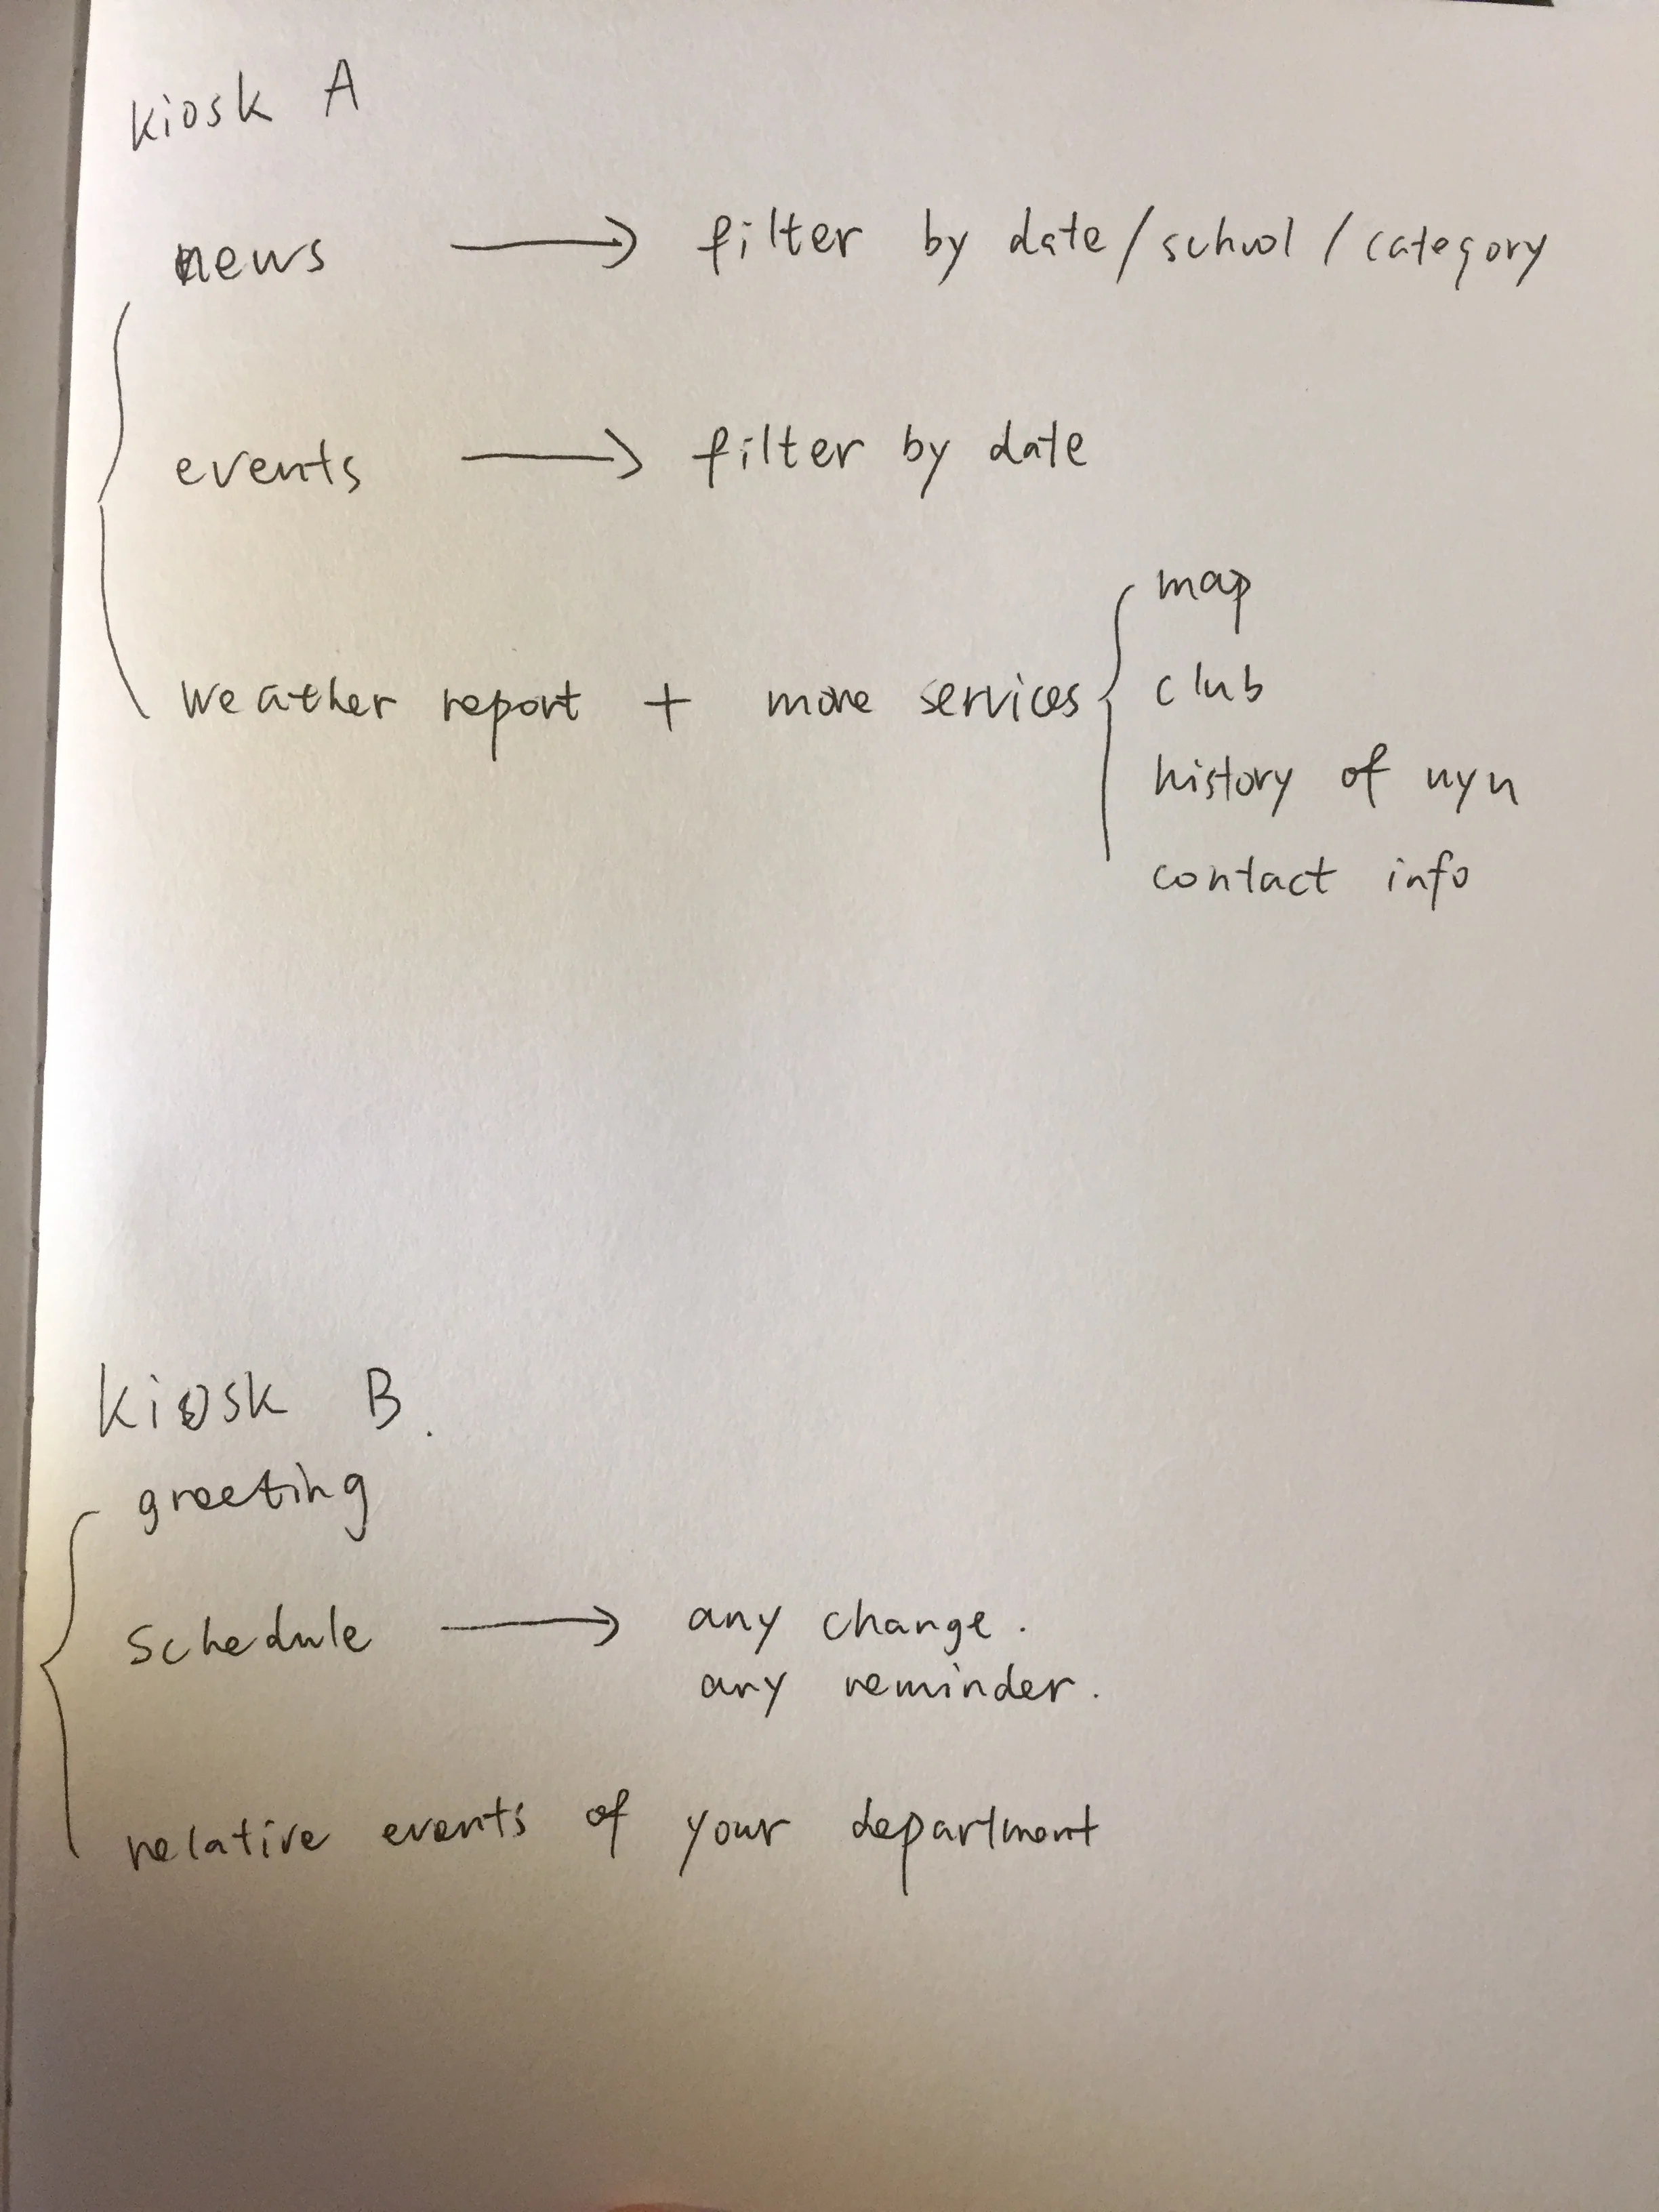 kiosk A
news → filter by date / school / category
events → filter by date
weather report + more services
map
club
history of nyu
contact info
kiosk B.
greeting
schedule → any change.
any reminder.
relative events of your department